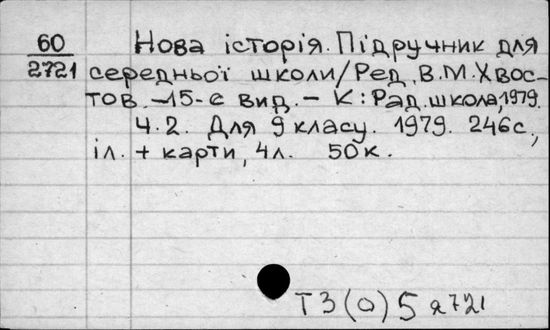 60 Нова історія. Підручник для
2721 середньої школи/Ред. В.М.Хвос-
тов. -15-е вид. - К: Рад. школа, 1979.
Ч.2. Для 9 класу. 1979. 246с.,
іл. + карти, 4л. 50к.
Т3(0)5 я721